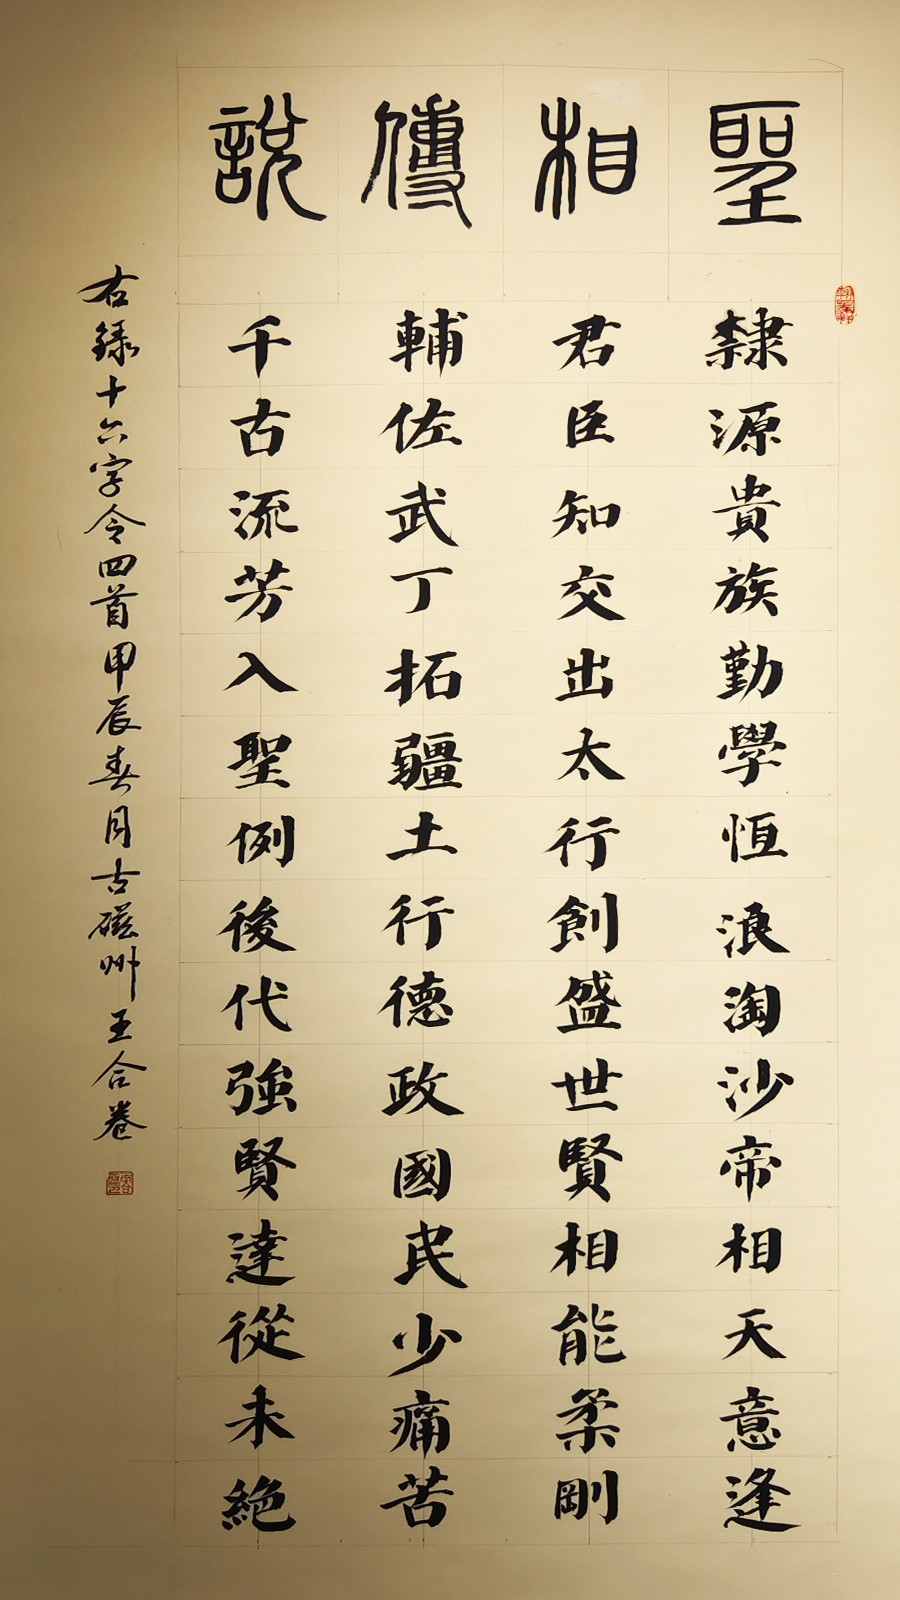 聖
隸源貴族勤學恆浪淘沙帝相天意逢
相
君臣知交出太行創盛世賢相能柔剛
傳
輔佐武丁拓疆土行德政國民少痛苦
說
千古流芳入聖例後代強賢達從未絕
右録十六字令四首甲辰春月古磁州王合卷